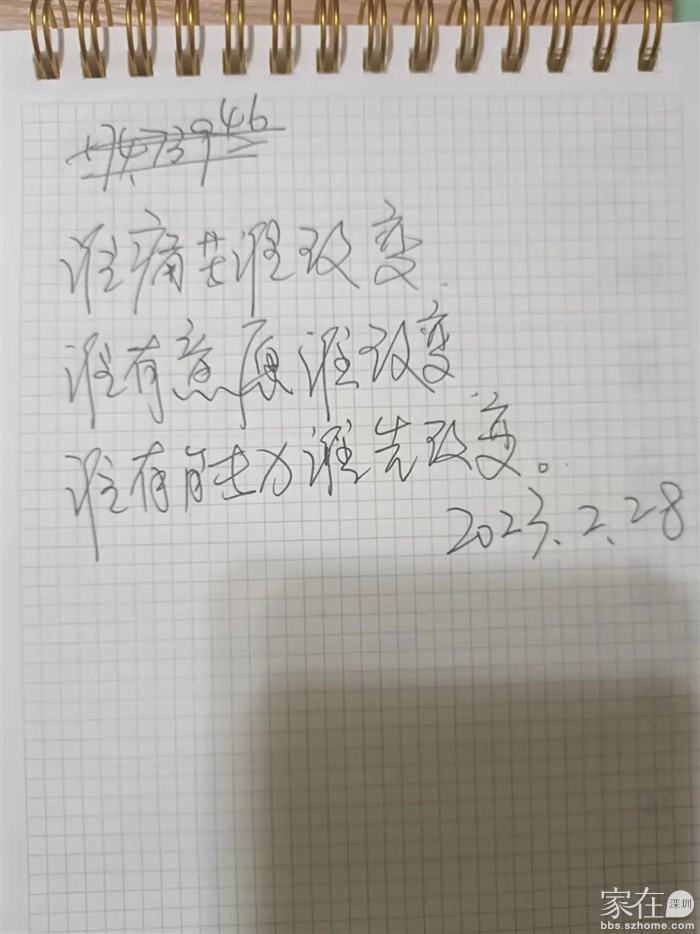 谁痛苦谁改变.
谁有意愿谁改变
谁有能力谁先改变。
2023.2.28
家在深圳
bbs.szhome.com